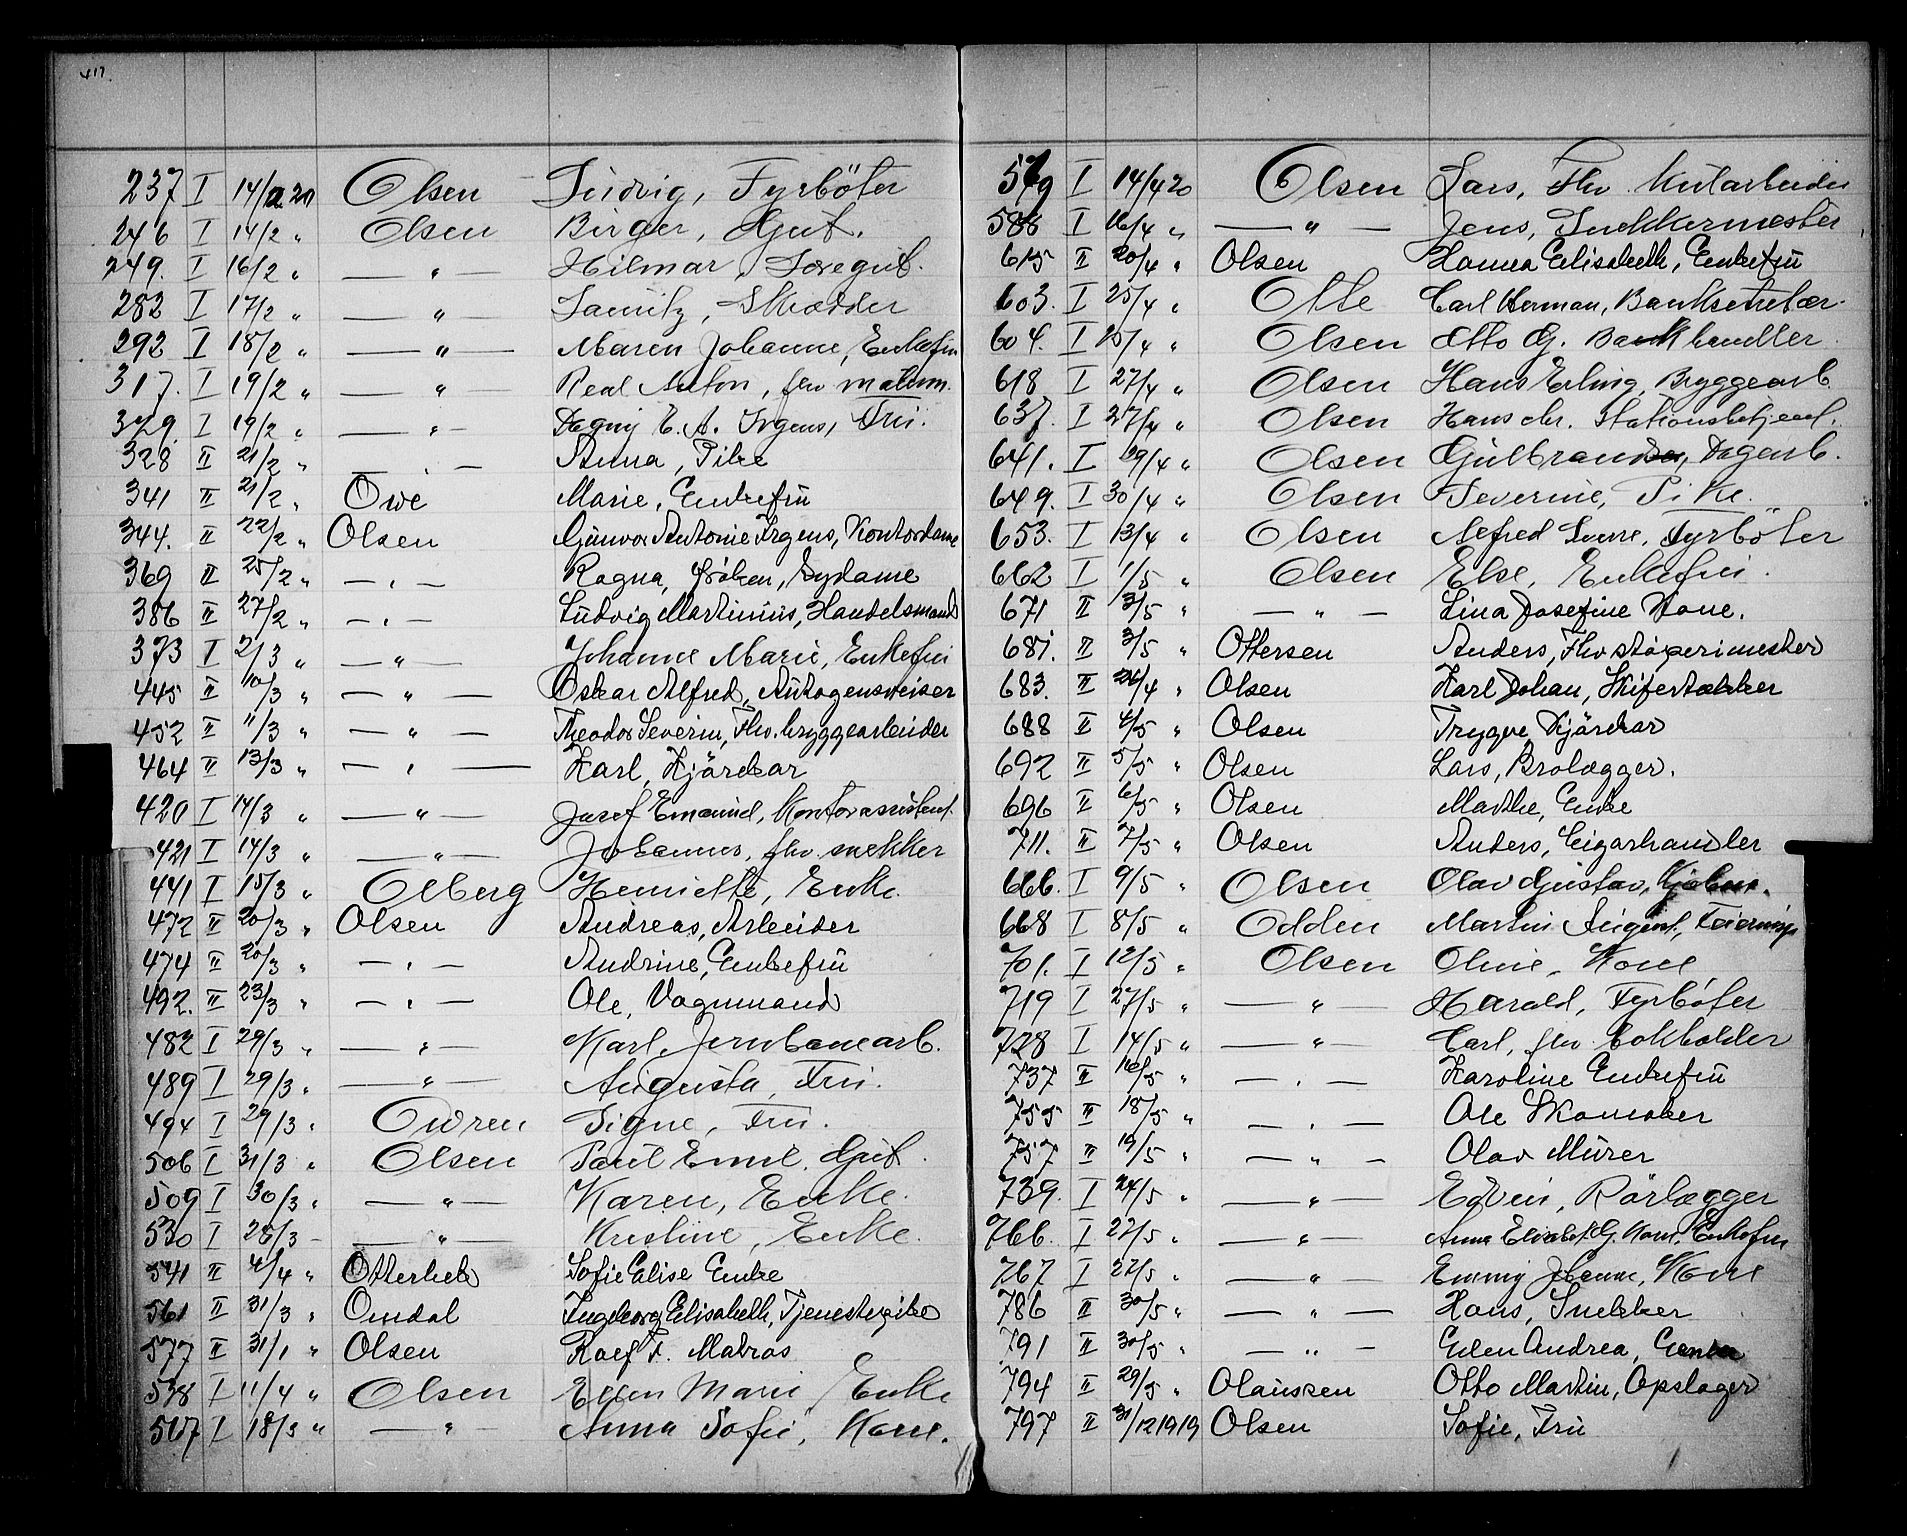 417.
237 I 14/2 20 Olsen Ludvig, Fyrböter
246 I 14/2 " Olsen Birger, Gut.
249. I 16/2 " — " — Hilmar, Læregut.
283 I 17/2 " — " — Lauritz, Skrædder
292 I 18/2 " — " — Maren Johanne, Enkefru
317. I 19/2 " — " — Anton, fhv
329. I 19/2 " — " — Dagny E. A. Irgens, Fru.
328 II 21/2 " — " — Anna, Pike
341 II 21/2 " Owe Marie, Enkefrü
344. II 22/2 " Olsen Günvor Antonie Irgens, Kontordame
369 II 25/2 " — " — Ragna, fröken, Sydame
386 II 27/2 " — " — Lüdvig Martinius, Handelsmand
373 I 2/3 " — " — Johanne Marie, Enkefru
445 II 10/3 " — " — Oskar Alfred, Aütogensveiser
452 II 11/3 " — " — Theodor Severin, Fhv. bryggearbeider
464 II 13/3 " — " — Karl, Kjörekar
420 I 14/3 " — " — Josef Emanuel, Kontorassistent.
421 I 14/3 " — " — Johannes, fhv snekker
441 I 15/3 " Olberg Henriette, Enke.
472 II 20/3 " Olsen Andreas, Arbeider
474 II 20/3 " — " — Andrine, Enkefrü
492. II 23/3 " — " — Ole, Vognmand
482 I 29/3 " — " — Karl, Jernbanearb.
489 I 29/3 " — " — Augusta, Fru.
494 I 29/3 " Owren Signe, Fru.
506 I 31/3 " Olsen Paul Emil, Gut.
509 I 30/3 " — " — Karen, Enke.
530 I 28/3 — — " — Kristine, Enke.
541 II 4/4 " Otterbek Sofie Elise Enke
561 II 31/3 " Omdal Ingeborg Elisabeth, Tjenestepike
577 II 31/1 " Olsen Rolf F. Matros
538 I 11/4 " Olsen Ellen Marie Enke
567 I 18/3 " — " — Anna Sofie, Kone.
579 I 14/4 20 Olsen Lars, Fhv.
588 I 16/4 " — " — Jens, Snekkermester
615 II 20/4 " Olsen Hanna Elisabeth, Enkefrü
603. I 25/4 " Otte Carl Herman, Banksekretær.
604. I 25/4 " Olsen Otto G. handler.
618 I 27/4 " Olsen Hans Erling, Bryggearb.
637. I 27/4 " Olsen Hans Chr. Stationsbetjent.
641. I 29/4 " Olsen Gulbrand, Dagarb.
649. I 30/4 " Olsen Severine, Pike.
653. I 13/4 " Olsen Alfred Sverre, Fyrböter
662 I 1/5 " Olsen Else, Enkefru.
671 II 3/5 " — " — Lina Josefine Kone.
681. II 3/5 " Ottersen Anders, Fhv støperimester
683. II 26/4 " Olsen Karl Johan, Skifertækker
688 II 4/5 " Olsen Trygve, Kjörekar
692 II 5/5 " Olsen Lars, Brolægger.
696 II 6/5 " Olsen Marthe, Enke
711. II 7/5 " Olsen Anders, Cigarhandler
666. I 9/5 " Olsen Olav Gustav,
668 I 8/5 " Odden Martin August,
701. I 12/5 " Olsen Oline, Kone
719 I 27/5 " — " — Harald, Fyrböter
728 I 14/5 " — " — Carl, fhv. Bokholder
737 II 16/5 " — " — Karoline Enkefrü
755 II 18/5 " — " — Ole Skomaker
757 II 19/5 " — " — Olav Mürer
739. I 24/5 " — " — Edvin, Rörlægger
766. I 22/5 " — " — Anna Elisabet G. Enkefru
767 I 27/5 " — " — Emmy Johanne, Kone
786 II 30/5 " — " — Hans, Snekker
791 II 30/5 " — " — Elen Andrea,
794 II 29/5 " Olaüssen Otto Martin, Opslager
797 II 31/12 1919 Olsen Sofie, Frü